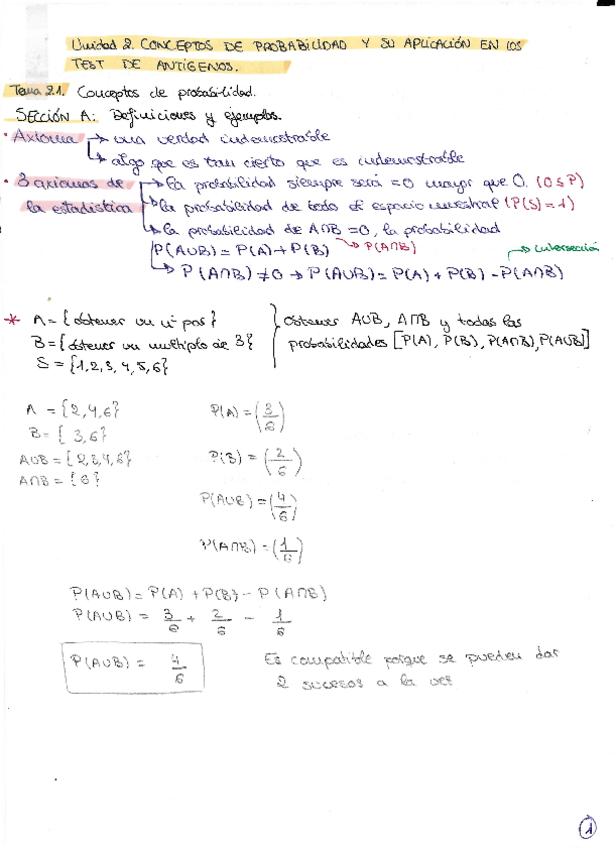 Unidad 2. CONCEPTOS DE PROBABILIDAD Y SU APLICACIÓN EN LOS
TEST DE ANTÍGENOS.
Tema 2.1. Conceptos de probabilidad.
SECCIÓN A: Definiciones y ejemplos.
· Axioma → una verdad indemostrable
↳ algo que es tan cierto que es indemostrable
· 3 axiomas de la estadística → la probabilidad siempre será =0 mayor que 0. (0≤P)
↳ la probabilidad de todo el espacio muestral (P(S)=1)
↳ la probabilidad de A∩B =0, la probabilidad
P(A∪B) = P(A)+P(B) → P(A∩B) → intersección
↳ P(A∩B) ≠0 → P(A∪B) = P(A) + P(B) - P(A∩B)
* A = {obtener un nº par} obtener A∪B, A∩B y todas las
B = {obtener un multiplo de 3} probabilidades [P(A), P(B), P(A∩B), P(A∪B)]
S = {1,2,3,4,5,6}
A = {2,4,6} P(A) = (3/6)
B = { 3,6} P(B) = (2/6)
A∪B = {2,3,4,6}
A∩B = {6} P(A∪B) = (4/6)
P(A∩B) = (1/6)
P(A∪B) = P(A) + P(B) - P(A∩B)
P(A∪B) = 3/6 + 2/6 - 1/6
P(A∪B) = 4/6 Es compatible porque se pueden dar
2 sucesos a la vez
1